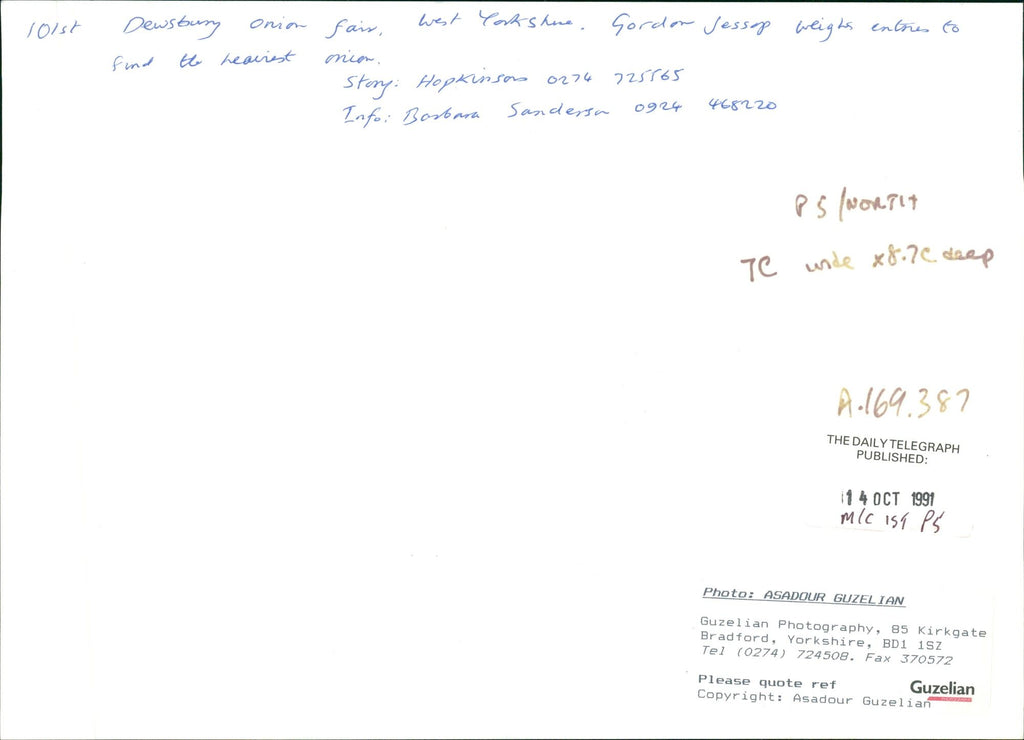 101st Dewsbury Onion fair, West Yorkshire. Gordon Jessop weighs entries to
find the heaviest onion.
Story: Hopkinsons 0274 725565
Info: Barbara Sanderson 0924 468220
P5/NORTH
7C wide x8.7C deep
A.169.387
THE DAILY TELEGRAPH
PUBLISHED:
14 OCT 1991
M/C 1st P5
Photo: ASADOUR GUZELIAN
Guzelian Photography, 85 Kirkgate
Bradford, Yorkshire, BD1 1SZ
Tel (0274) 724508. Fax 370572
Please quote ref
Guzelian
Copyright: Asadour Guzelian